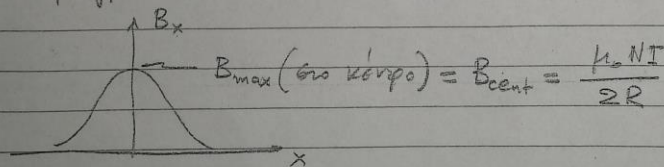 Bₓ
B_max (στο κέντρο) = B_cent = μ₀ NI / 2R
x